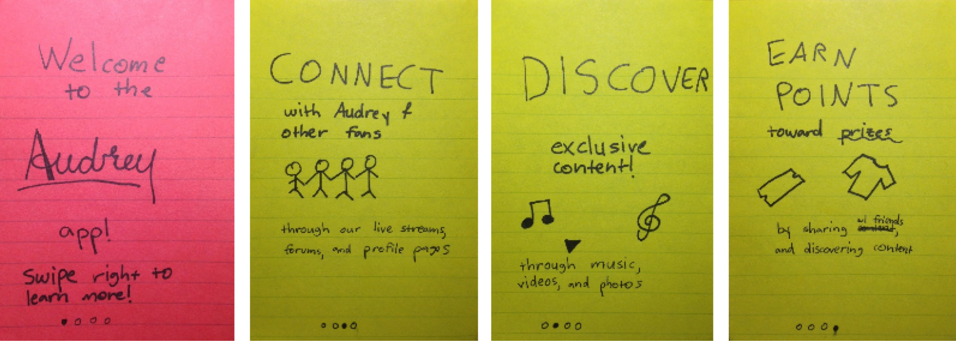 Welcome
to the
Audrey
app!
Swipe right to
learn more!
CONNECT
with Audrey &
other fans
through our live streams,
forums, and profile pages
DISCOVER
exclusive
content!
through music,
videos, and photos
EARN
POINTS
toward prizes
w/ friends
by sharing,
and discovering content